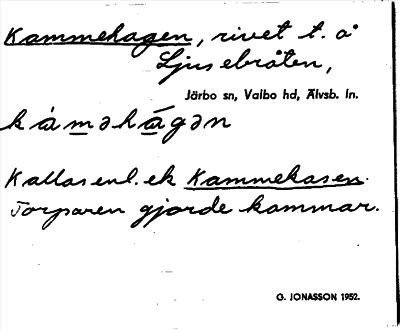 Kammehagen, rivet t. å
Ljusebråten,
Järbo sn, Valbo hd, Älvsb. ln.
kàməhágən
Kallas enl. ek Kammekasen.
Torparen gjorde kammar.
G. JONASSON 1952.